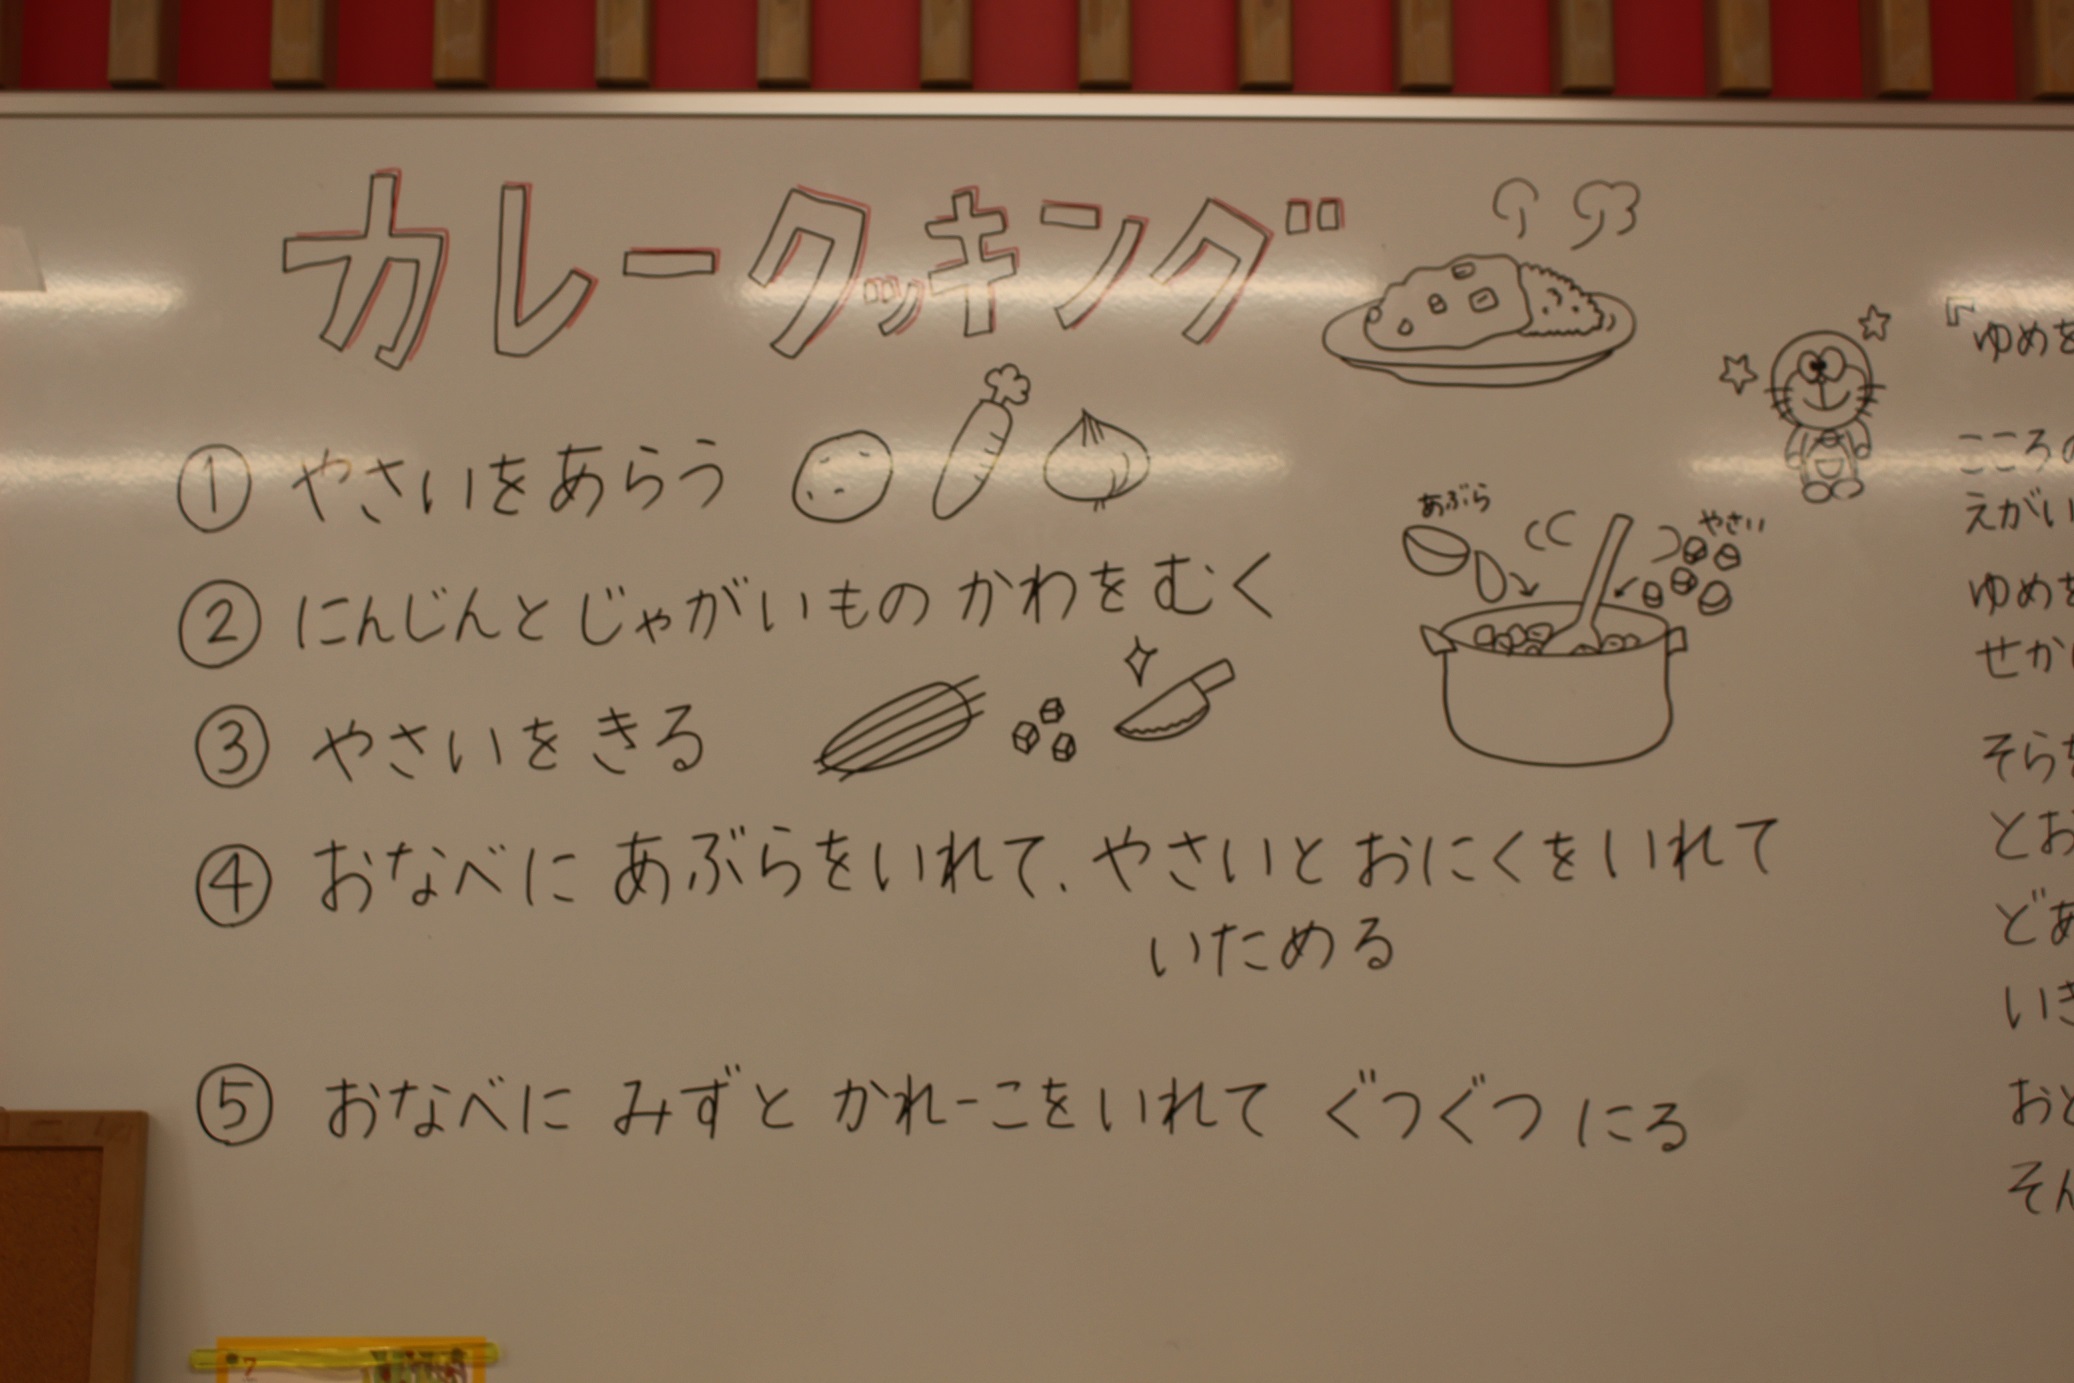 カレークッキング
① やさいをあらう
② にんじんとじゃがいもの かわをむく
③ やさいをきる
あぶら
やさい
④ おなべに あぶらをいれて、やさいと おにくをいれて
いためる
⑤ おなべに みずと かれーこをいれて ぐつぐつ にる
『ゆめを
こころの
えがい
ゆめを
せかい
そらを
とお
どあ
いき
おと
そん
7